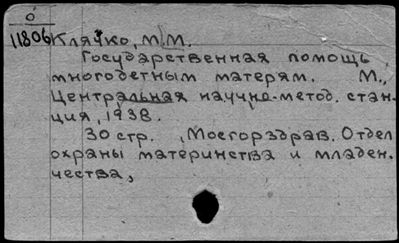 о
11806 Клячко, М.М.
Государственная помощь
многодетным матерям. М.,
Центральная научно-метод. стан-
ция, 1938.
30 стр. , Мосгорздрав. Отдел
охраны материнства и младен.
чества,